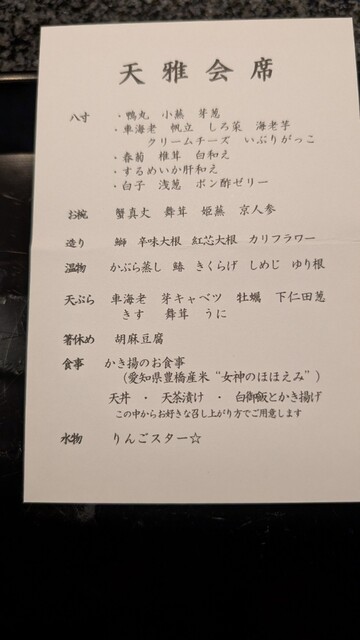 天雅会席
八寸 ・鴨丸 小蕪 芽葱
・車海老 帆立 しろ菜 海老芋
クリームチーズ いぶりがっこ
・春菊 椎茸 白和え
・するめいか肝和え
・白子 浅葱 ポン酢ゼリー
お椀 蟹真丈 舞茸 姫蕪 京人参
造り 鰤 辛味大根 紅芯大根 カリフラワー
温物 かぶら蒸し 鰆 きくらげ しめじ ゆり根
天ぷら 車海老 芽キャベツ 牡蠣 下仁田葱
きす 舞茸 うに
箸休め 胡麻豆腐
食事 かき揚のお食事
(愛知県豊橋産米"女神のほほえみ")
天丼 ・ 天茶漬け ・ 白御飯とかき揚げ
この中からお好きな召し上がり方でご用意します
水物 りんごスター☆